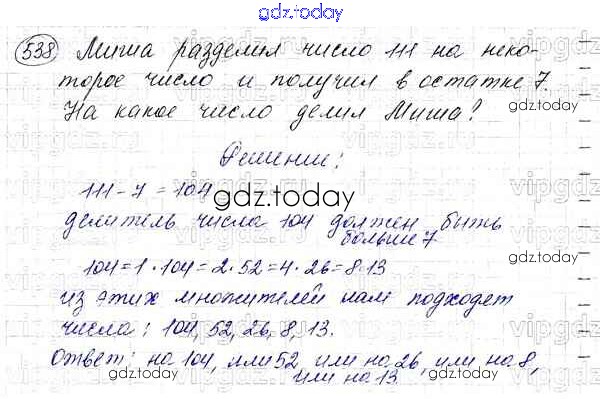 gdz.today
538 Миша разделил число 111 на неко-
торое число и получил в остатке 7.
На какое число делил Миша?
gdz.today
Решение:
111-7=104
gdz.today
делитель числа 104 должен быть
больше 7
104=1·104=2·52=4·26=8·13
gdz.today
из этих множителей нам подходят
числа: 104, 52, 26, 8, 13.
gdz.today
Ответ: на 104, или 52, или на 26, или на 8,
или на 13